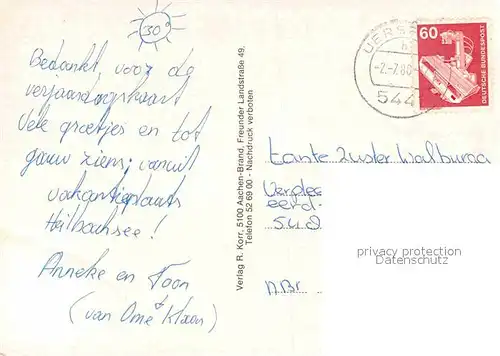 30°
Bedankt voor de
verjaardagskaart
Vele groetjes en tot
gauw ziens, vanuit
vakantieplaats
Heilbachsee!
Anneke en Toon
(van Ome Klaas)
Verlag R. Korr, 5100 Aachen-Brand, Freunder Landstraße 49,
Telefon 52 69 00 - Nachdruck verboten
UERS
-2.-7.80
544
60
DEUTSCHE BUNDESPOST
tante Zuster Walburga
sud
NBr
privacy protection
Datenschutz